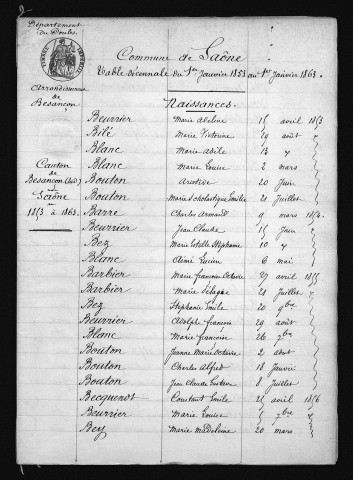 Département
du Doubs.
Arrondissement
de
Besançon
Canton
de
Besançon (Sud)
Saône
1853 à 1863.
Commune de Saône
Table décennale du 1er Janvier 1853 au 1er Janvier 1863.
Naissances.
Beurrier Marie Adeline 15 avril 1853
Bilé Marie Victorine 19 août "
Blanc Marie Adile 13 "
Blanc Marie Louise 2 mars
Bouton Aristide 20 Juin
Bouton Marie Scholastique Emilie 21 Juillet
Barre Charles Armand 9 mars 1854
Beurrier Jean Claude 15 Juin "
Bez Marie Estelle Stéphanie 10 "
Blanc Aimé Lucien 6 mai
Barbier Marie françoise Octavie 27 avril 1855
Barbier Marie Pélagie 21 Juillet "
Bez Stéphanie Emile 20 9bre
Beurrier Adolphe françois 29 août
Blanc Marie françoise 26 7bre
Bouton Jeanne Marie Octavie 2 aout
Bouton Charles Alfred 18 Janvier
Bouton Jean Claude Gustave 8 Juillet
Becquenot Constant Emile 21 avril 1856
Beurrier Marie Louise 1 7bre "
Bey Marie Madeleine 20 mars